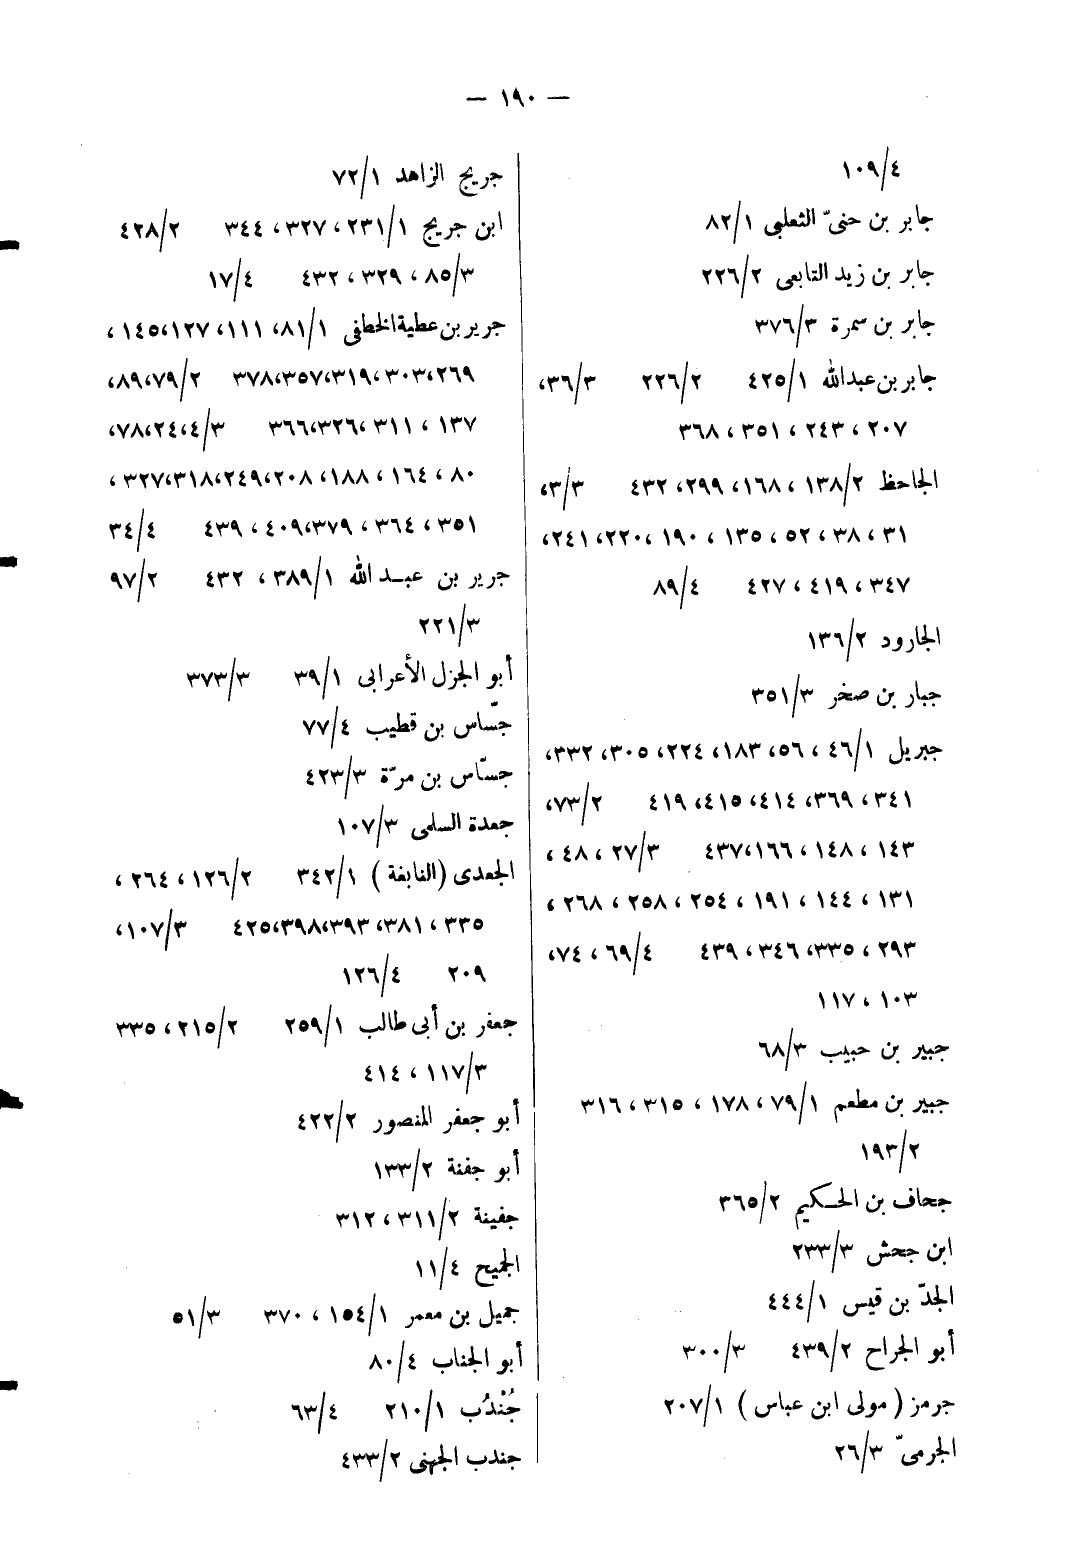 — ١٩٠ —
١٠٩/٤
جابر بن حنىّ الثعلبى ٨٢/١
جابر بن زيد التابعى ٢٢٦/٢
جابر بن سمرة ٣٧٦/٣
جابر بن عبدالله ٤٢٥/١ ٢٢٦/٢ ٣٦/٣،
٢٠٧ ، ٢٤٣ ، ٣٥١ ، ٣٦٨
الجاحظ ١٣٨/٢ ، ١٦٨، ٢٩٩، ٤٣٢ ٣/٣،
٣١ ، ٣٨ ، ٥٢ ، ١٣٥ ، ١٩٠ ،٢٢٠، ٢٤١،
٣٤٧ ، ٤١٩ ، ٤٢٧ ٨٩/٤
الجارود ١٣٦/٢
جبار بن صخر ٣٥١/٣
جبريل ٤٦/١ ، ٥٦، ١٨٣، ٢٢٤، ٣٠٥، ٣٣٢،
٣٤١ ، ٣٦٩، ٤١٤، ٤١٥، ٤١٩ ٧٣/٢،
١٤٣ ، ١٤٨ ، ١٦٦، ٤٣٧ ٢٧/٣ ، ٤٨ ،
١٣١ ، ١٤٤ ، ١٩١ ، ٢٥٤ ، ٢٥٨ ، ٢٦٨ ،
٢٩٣ ، ٣٣٥، ٣٤٦ ، ٤٣٩ ٦٩/٤ ، ٧٤،
١٠٣ ، ١١٧
جبير بن حبيب ٦٨/٣
جبير بن مطعم ٧٩/١ ، ١٧٨ ، ٣١٥ ، ٣١٦
١٩٣/٢
جحاف بن الحكيم ٣٦٥/٢
ابن جحش ٢٣٣/٣
الجدّ بن قيس ٤٤٤/١
أبو الجراح ٤٣٩/٢ ٣٠٠/٣
جرمز ( مولى ابن عباس ) ٢٠٧/١
الجرمىّ ٢٦/٣
جريج الزاهد ٧٢/١
ابن جريج ٢٣١/١ ، ٣٢٧ ، ٣٤٤ ٤٢٨/٢
٨٥/٣ ، ٣٢٩ ، ٤٣٢ ١٧/٤
جرير بن عطية الخطفى ٨١/١ ، ١١١ ، ١٢٧، ١٤٥ ،
٢٦٩، ٣٠٣، ٣١٩، ٣٥٧، ٣٧٨ ٧٩/٢، ٨٩،
١٣٧ ، ٣١١ ، ٣٢٦، ٣٦٦ ٤/٣، ٢٤، ٧٨،
٨٠ ، ١٦٤ ، ١٨٨ ، ٢٠٨، ٢٤٩، ٣١٨، ٣٢٧ ،
٣٥١ ، ٣٦٤ ، ٣٧٩، ٤٠٩ ، ٤٣٩ ٣٤/٤
جرير بن عبد الله ٣٨٩/١ ، ٤٣٢ ٩٧/٢
٢٢١/٣
أبو الجزل الأعرابى ٣٩/١ ٣٧٣/٣
جسّاس بن قطيب ٧٧/٤
جسّاس بن مرّة ٤٢٣/٣
جعدة السلمى ١٠٧/٣
الجعدى (النابغة) ٣٤٢/١ ١٢٦/٢ ، ٢٦٤ ،
٣٣٥ ، ٣٨١، ٣٩٣، ٣٩٨، ٤٢٥ ١٠٧/٣،
٢٠٩ ١٢٦/٤
جعفر بن أبى طالب ٢٥٩/١ ٢١٥/٢ ، ٣٣٥
١١٧/٣ ، ٤١٤
أبو جعفر المنصور ٤٢٢/٢
أبو جفنة ١٣٣/٢
جفينة ٣١١/٢ ، ٣١٢
الجميح ١١/٤
جميل بن معمر ١٥٤/١ ، ٣٧٠ ٥١/٣
أبو الجناب ٨٠/٤
جُنْدُب ٢١٠/١ ٦٣/٤
جندب الجهنى ٤٣٣/٢